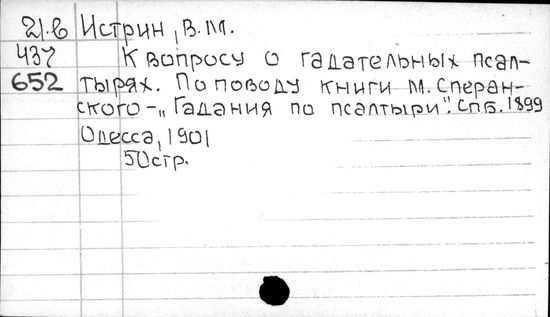 21.в Истрин, В.М.
437 К вопросу о гадательных псал-
652 тырях. По поводу книги М. Сперан-
ского - „Гадания по псалтыри". Спб. 1899
Одесса, 1901
50стр.